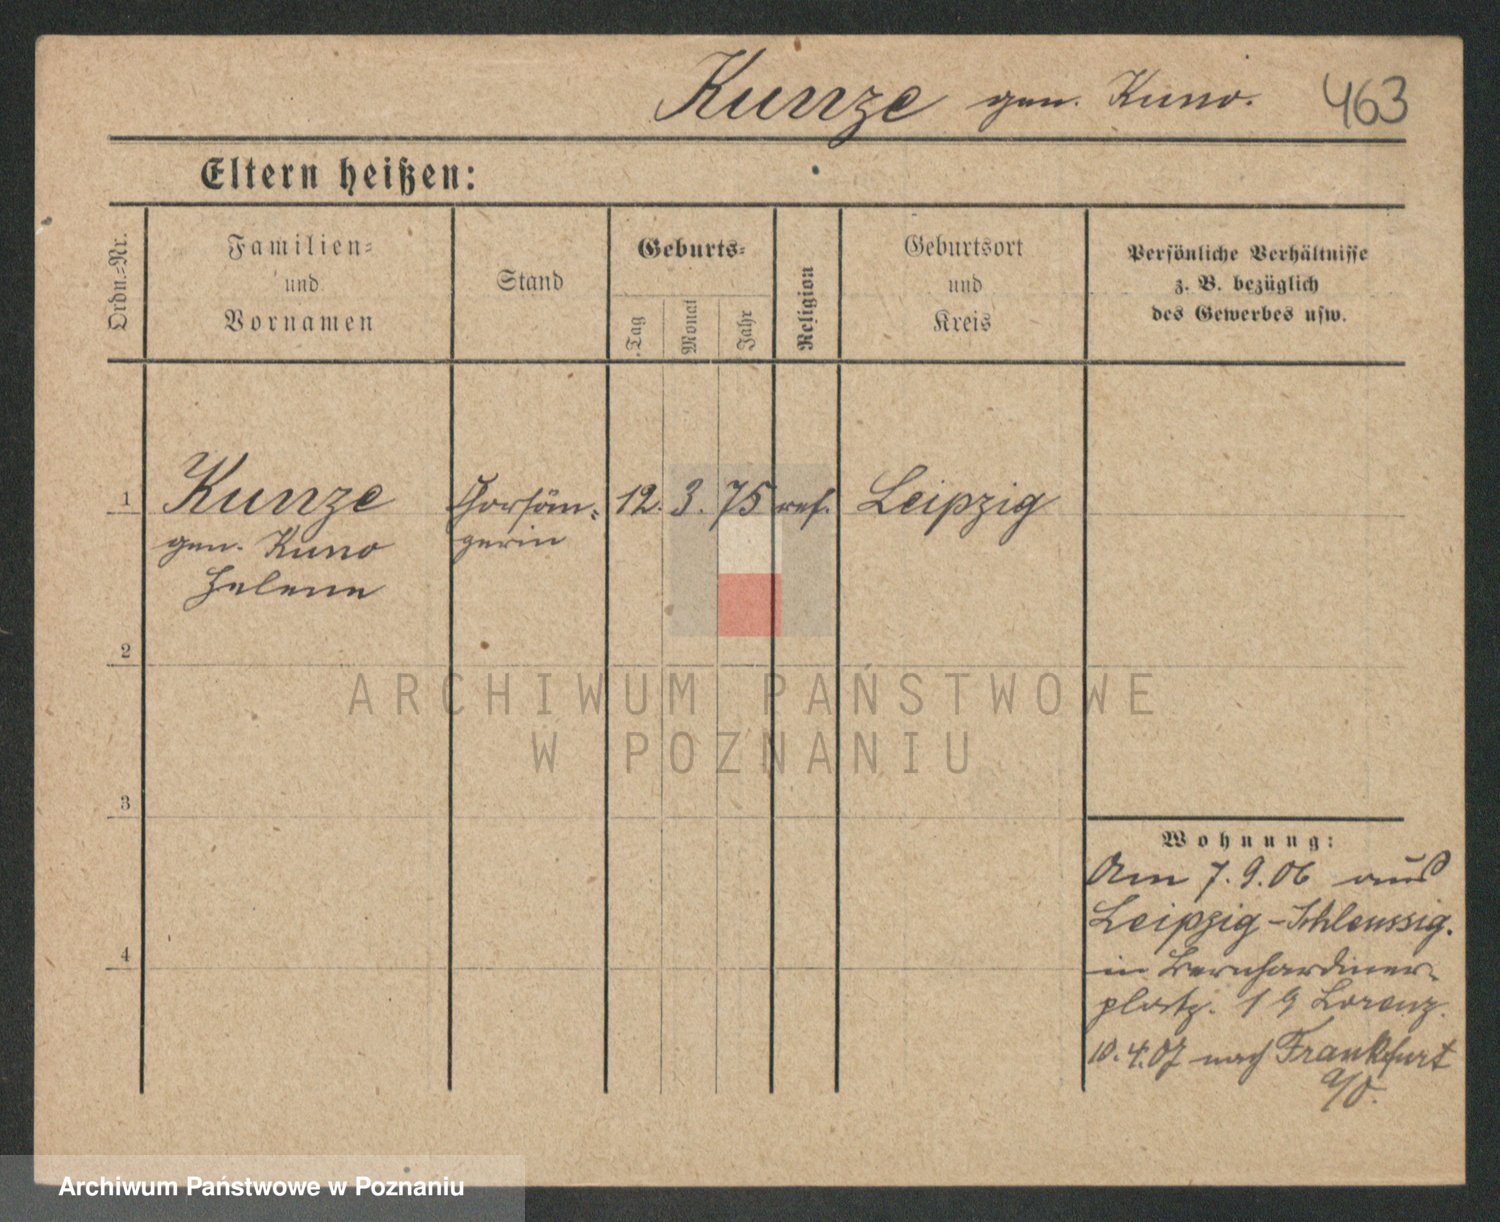 Kunze gen. Kuno. 463
Eltern heißen:
Ordn.-Nr.
Familien-
und
Vornamen
Stand
Geburts-
Tag
Monat
Jahr
Religion
Geburtsort
und
Kreis
Persönliche Verhältnisse
z. B. bezüglich
des Gewerbes usw.
1 Kunze Chorsän- 12. 3. 75 ref. Leipzig
gen. Kuno gerin
Helene
2
ARCHIWUM PAŃSTWOWE
W POZNANIU
3
Wohnung:
Am 7.9.06 aus
Leipzig-Schleussig.
4
in Bernhardiner-
platz. 19 Lorenz.
10.4.07 nach Frankfurt
a/O.
Archiwum Państwowe w Poznaniu